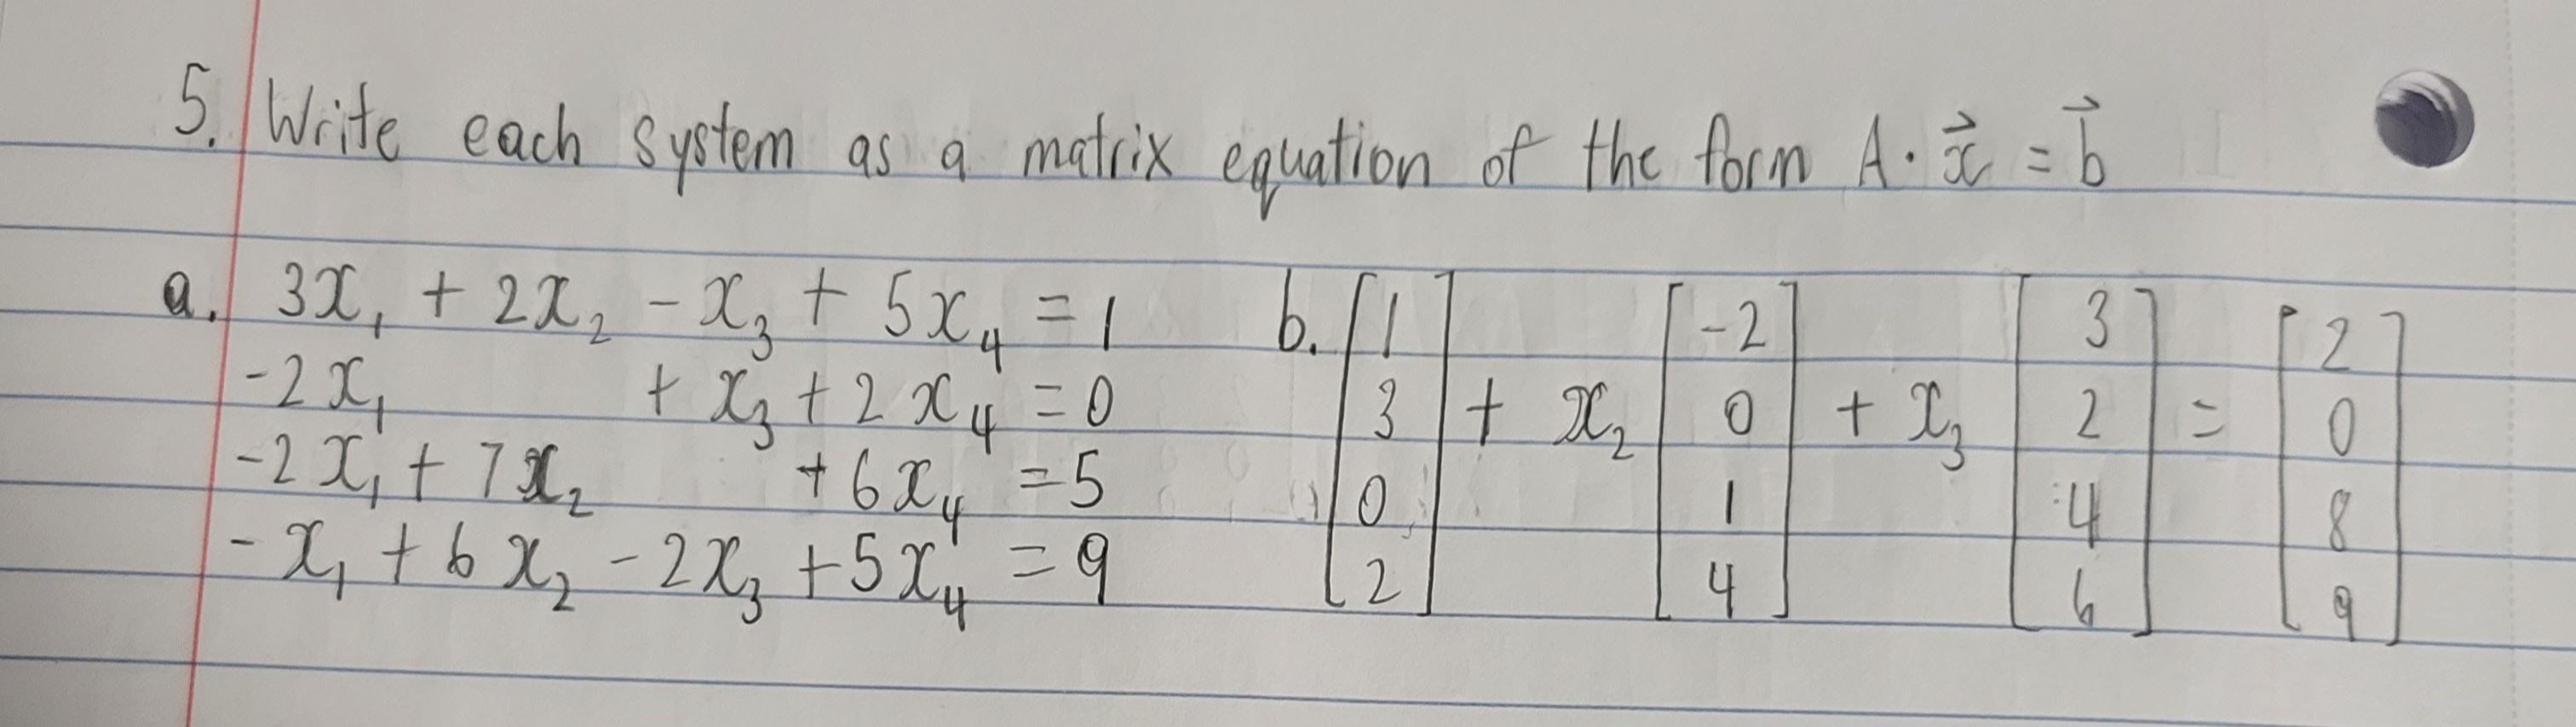 5. Write each system as a matrix equation of the form A · x⃗ = b⃗
a. 3x₁ + 2x₂ - x₃ + 5x₄ = 1
-2x₁ + x₃ + 2x₄ = 0
-2x₁ + 7x₂ + 6x₄ = 5
-x₁ + 6x₂ - 2x₃ + 5x₄ = 9
b. [1 3 0 2] + x₂ [-2 0 1 4] + x₃ [3 2 4 6] = [2 0 8 9]